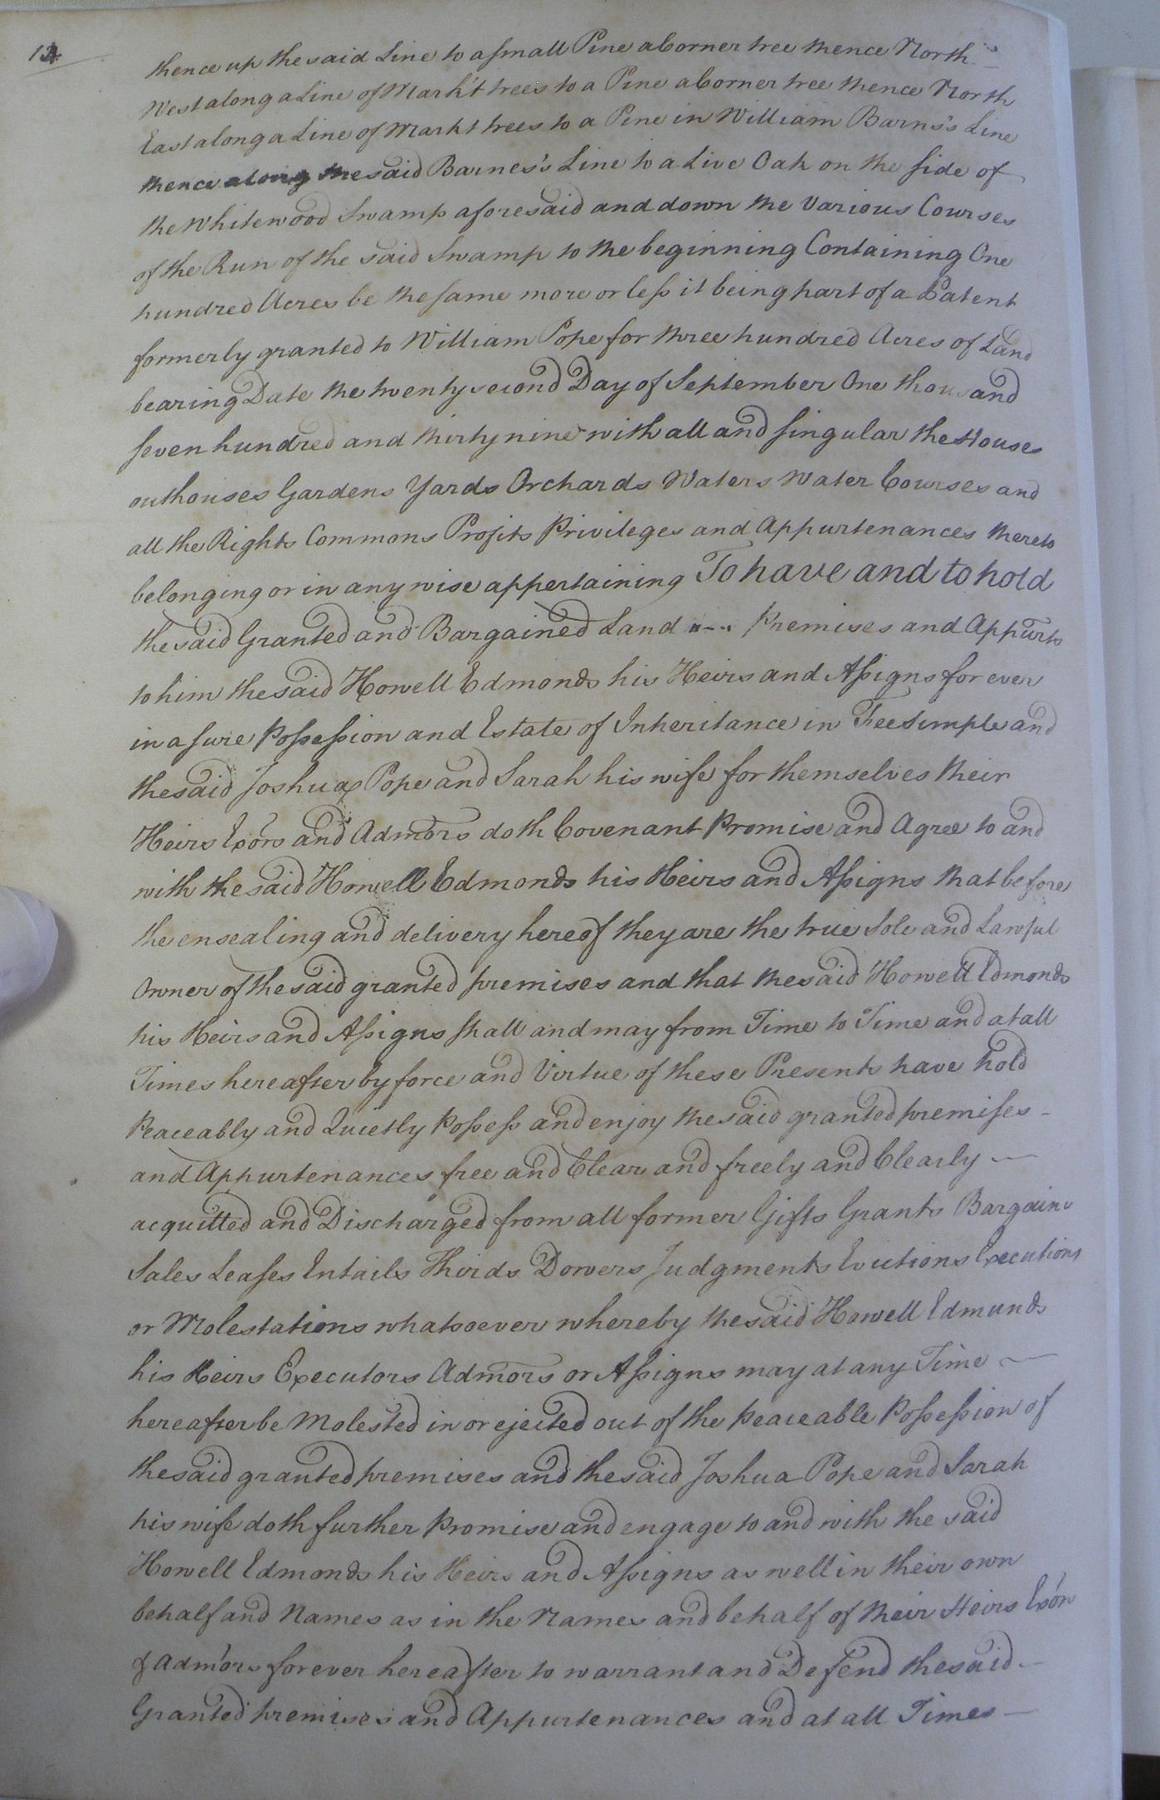 134
thence up the said Line to a small Pine a Corner tree thence North
West along a Line of Mark't trees to a Pine a Corner tree thence North
East along a Line of Markt trees to a Pine in William Barns's Line
thence along the said Barnes's Line to a Live Oak on the side of
the Whitewood Swamp aforesaid and down the Various Courses
of the Run of the said Swamp to the beginning Containing One
hundred Acres be the same more or less it being part of a Patent
formerly granted to William Pope for three hundred Acres of Land
bearing Date the twenty second Day of September One thousand
seven hundred and thirty nine with all and singular the Houses
outhouses Gardens Yards Orchards Waters Water Courses and
all the Rights Commons Profits Privileges and Appurtenances thereto
belonging or in any wise appertaining To have and to hold
the said Granted and Bargained Land Premises and Appurts
to him the said Howell Edmonds his Heirs and Assigns for ever
in a sure Possession and Estate of Inheritance in Fee simple and
the said Joshua Pope and Sarah his wife for themselves their
Heirs Exors and Admors doth Covenant Promise and Agree to and
with the said Howell Edmonds his Heirs and Assigns that before
the ensealing and delivery hereof they are the true Sole and Lawful
Owner of the said granted premises and that the said Howell Edmonds
his Heirs and Assigns shall and may from Time to Time and at all
Times hereafter by force and Virtue of these Presents have hold
Peaceably and Quietly Possess and enjoy the said granted premises -
and Appurtenances free and Clear and freely and Clearly —
acquitted and Discharged from all former Gifts Grants Bargains
Sales Leases Entails Thirds Dowers Judgments Evictions Executions
or Molestations whatsoever whereby the said Howell Edmunds
his Heirs Executors Admors or Assigns may at any Time —
hereafter be Molested in or ejected out of the peaceable Possession of
the said granted premises and the said Joshua Pope and Sarah
his wife doth further Promise and engage to and with the said
Howell Edmonds his Heirs and Assigns as well in their own
behalf and Names as in the Names and behalf of their Heirs Exors
& Admors forever hereafter to warrant and Defend the said —
Granted premises and Appurtenances and at all Times —